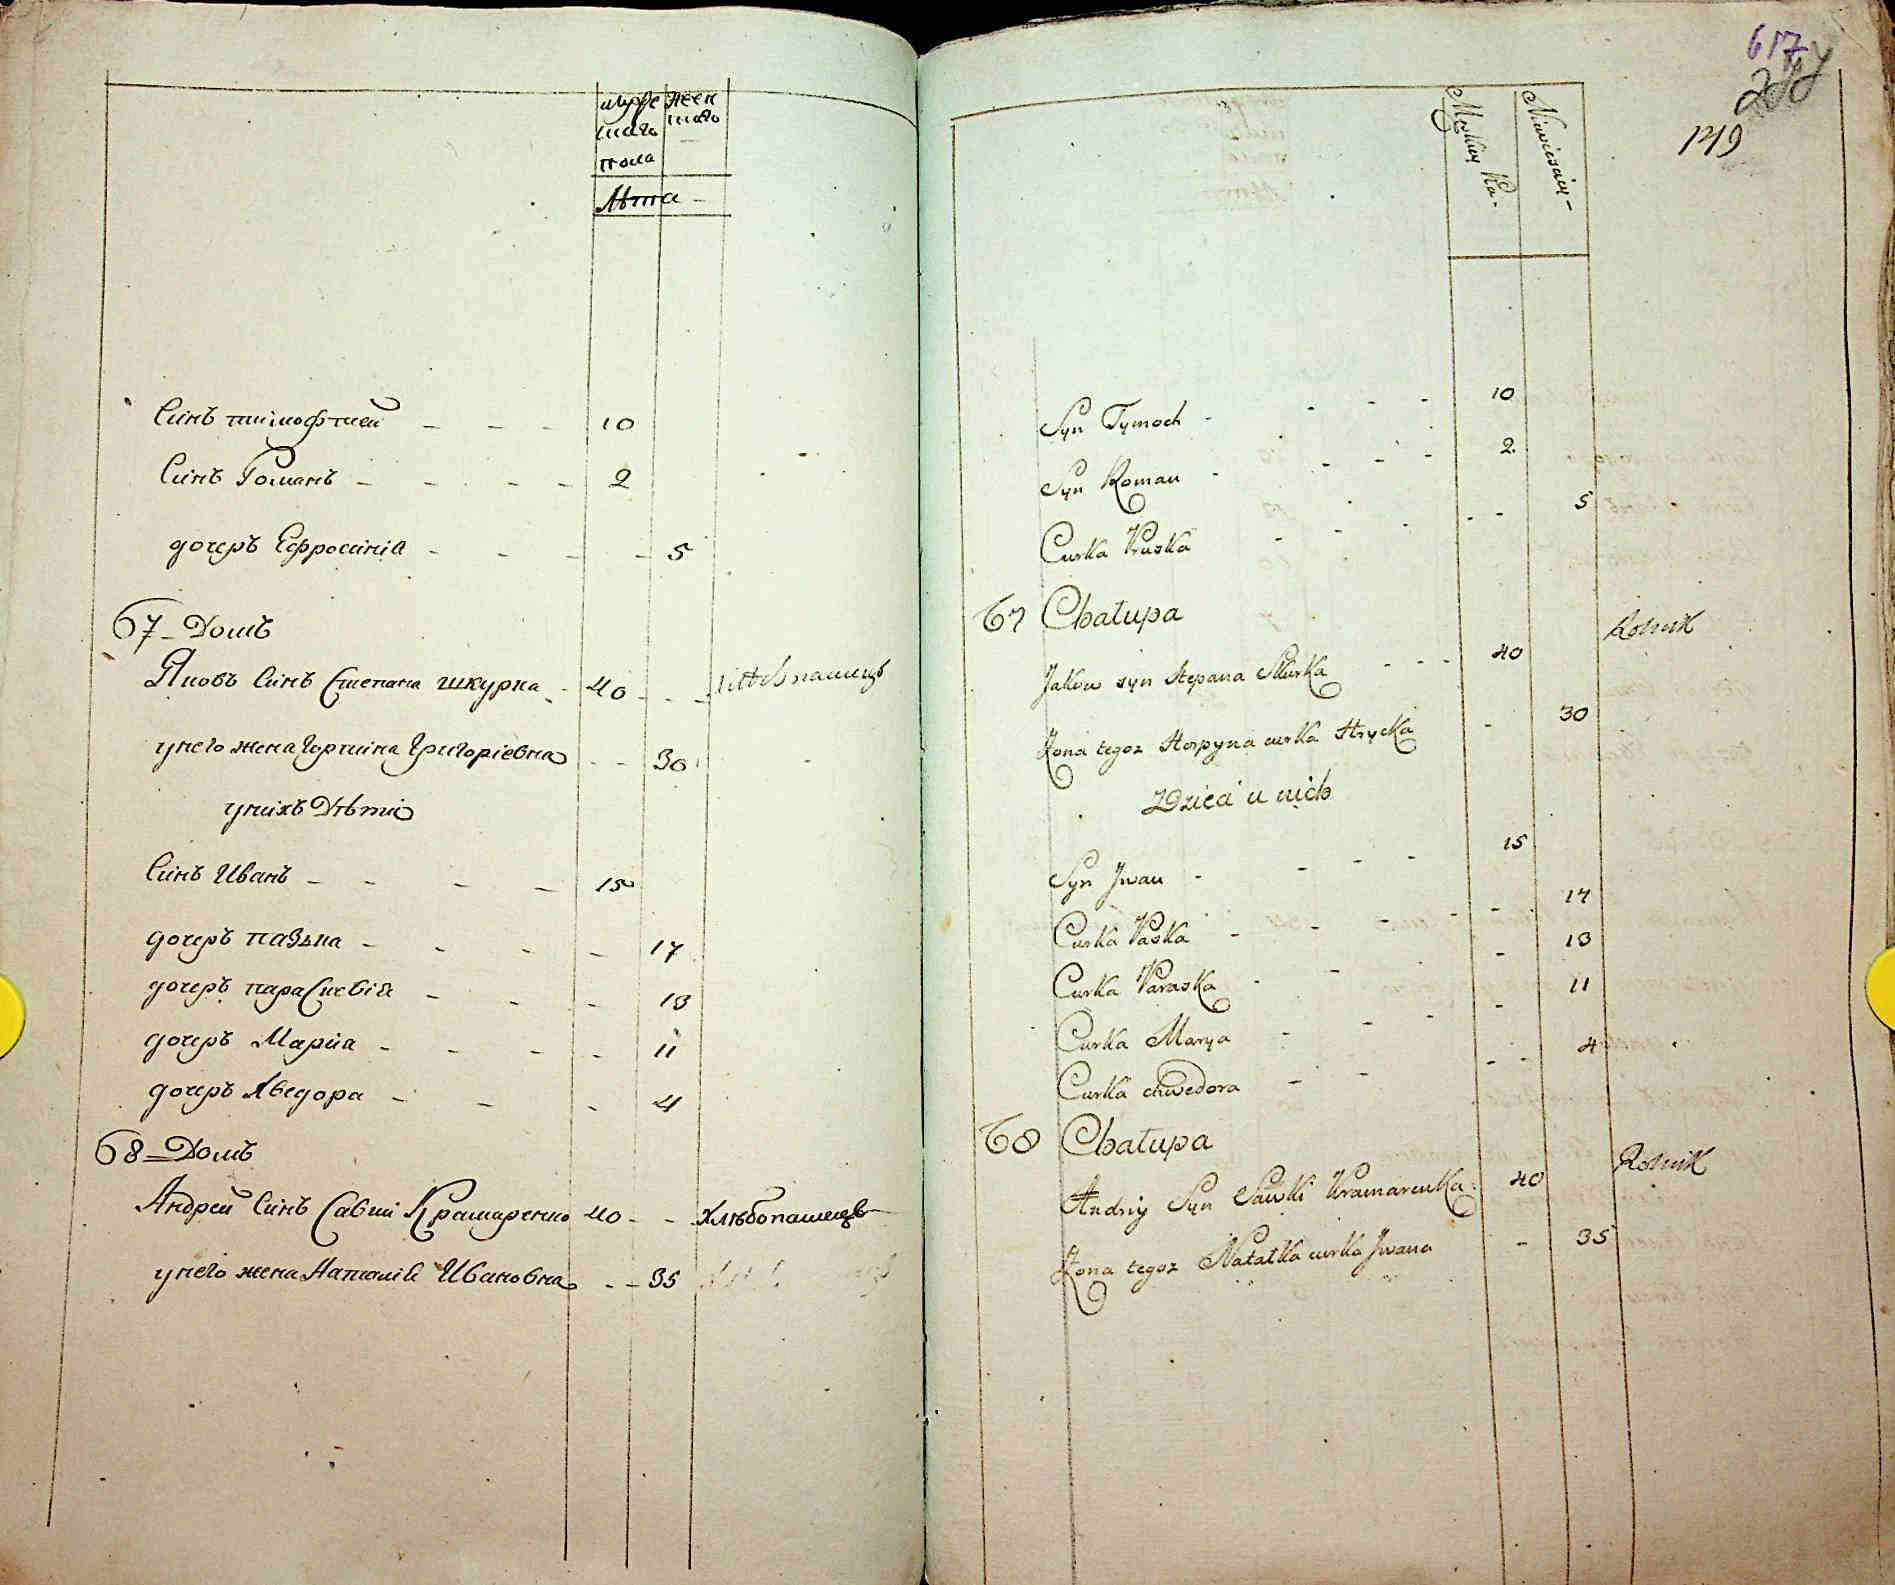 муже жен
скаго скаго
пола
Лѣта
Синъ тимофтей 10
Синъ Романъ 2
дочеръ Ефросиніа 5
67 Домъ
Яковъ Синъ Степана шкурка 40 хлѣбопашецъ
унего жена Горпина Григоріевна 30
унихъ Дѣти
Синъ Иванъ 15
дочеръ пазька 17
дочеръ параскевіа 13
дочеръ Мариа 11
дочеръ Хведора 4
68 Домъ
Андрей Синъ Савки Крамаренко 40 хлѣбопашецъ
унего жена Наталіа Ивановна 35
617
149
Męskiey Niewieściey
Syn Tymoch 10
Syn Roman 2
Curka Pruska 5
67 Chałupa Rolnik
Jakow syn Stepana Skurka 40
Żona tegoż Horpyna curka Hrycka 30
Dzieci u nich
Syn Jwan 15
Curka Paska 17
Curka Paraska 13
Curka Marya 11
Curka chwedora 4
68 Chałupa Rolnik
Andriy Syn Sawki Kramarenka 40
Żona tegoż Natałka curka Jwana 35